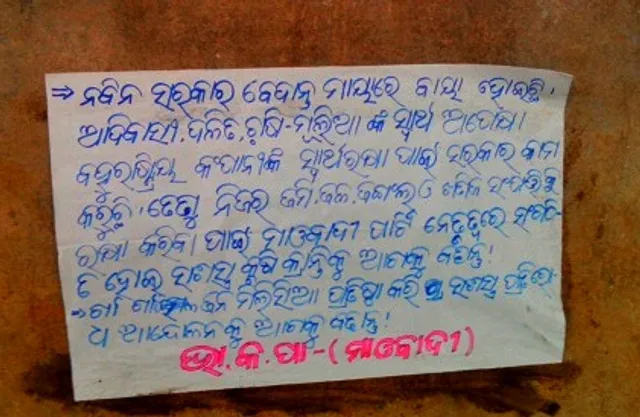 ⇒ ନବିନ ସରକାର ବେଦାନ୍ତ ମାୟାରେ ବାୟା ହୋଇଛି ।
ଆଦିବାସୀ, ଦଳିତ, ଚାଷୀ-ମୂଲିଆ ଙ୍କ ସ୍ୱାର୍ଥ ଅପେକ୍ଷା
ବହୁରାଷ୍ଟ୍ରିୟ କଂପାନୀଙ୍କ ସ୍ୱାର୍ଥରକ୍ଷା ପାଇଁ ସରକାର କାମ
କରୁଛି । ତେଣୁ ନିଜର ଜମି, ଜଳ, ଜଙ୍ଗଲ ଓ ଖଣିଜ ସଂପତ୍ତିକୁ
ରକ୍ଷା କରିବା ପାଇଁ ମାଓବାଦୀ ପାର୍ଟି ନେତୃତ୍ୱରେ ସଂଗଠି-
ତ ହୋଇ ସଶସ୍ତ୍ର କୃଷି କ୍ରାନ୍ତିକୁ ଆଗକୁ ବଢାନ୍ତୁ !
⇒ ଗାଁ ଗାଁ ଜନ ମିଲିସିଆ ପ୍ରତିଷ୍ଠା କରି ସଶସ୍ତ୍ର ପ୍ରତିରୋ-
ଧ ଆନ୍ଦୋଳନକୁ ଆଗକୁ ବଢାନ୍ତୁ !
ଭା.କ.ପା-(ମାଓବାଦୀ)